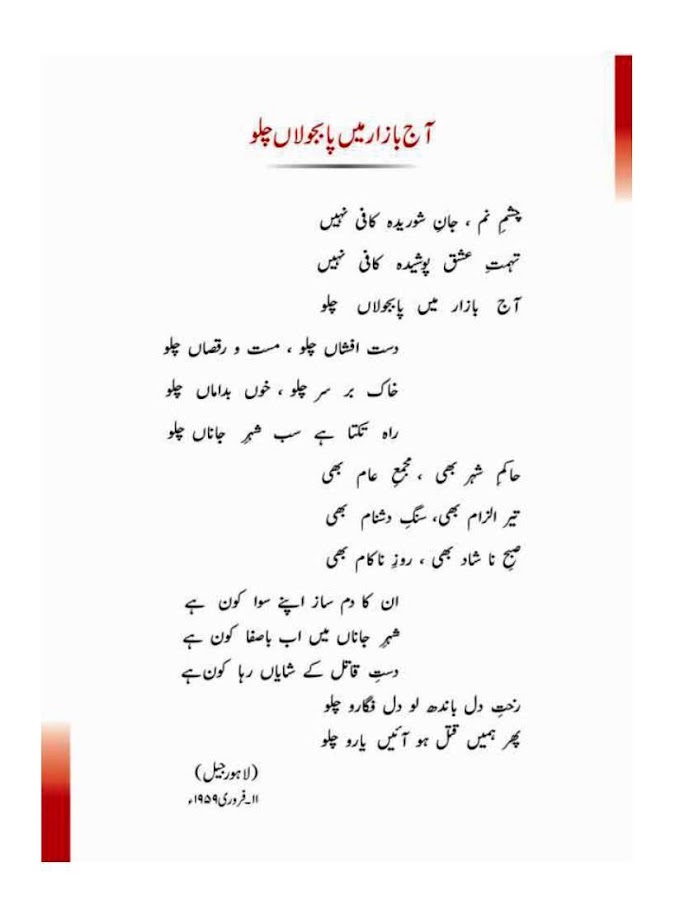 آج بازار میں پابجولاں چلو
چشمِ نم ، جانِ شوریدہ کافی نہیں
تہمتِ عشق پوشیدہ کافی نہیں
آج بازار میں پابجولاں چلو
دست افشاں چلو ، مست و رقصاں چلو
خاک بر سر چلو ، خوں بداماں چلو
راہ تکتا ہے سب شہرِ جاناں چلو
حاکمِ شہر بھی ، مجمعِ عام بھی
تیرِ الزام بھی، سنگِ دشنام بھی
صبحِ نا شاد بھی ، روزِ ناکام بھی
ان کا دم ساز اپنے سوا کون ہے
شہرِ جاناں میں اب باصفا کون ہے
دستِ قاتل کے شایاں رہا کون ہے
رختِ دل باندھ لو دل فگارو چلو
پھر ہمیں قتل ہو آئیں یارو چلو
(لاہور جیل)
۱۱۔فروری ۱۹۵۹ء